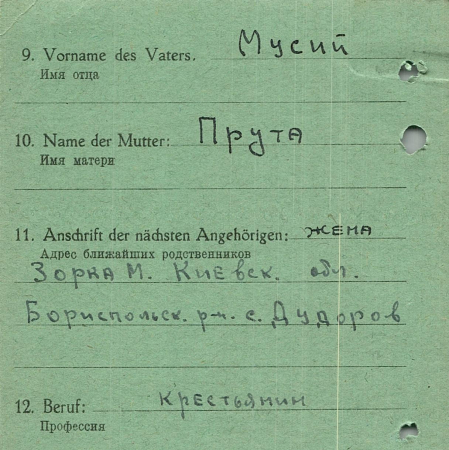 9. Vorname des Vaters. Мусий
Имя отца
10. Name der Mutter: Прута
Имя матери
11. Anschrift der nächsten Angehörigen: жена
Адрес ближайших родственников
Зорка М. Киевск. обл.
Бориспольск. р-н. с. Дудоров
12. Beruf: крестьянин
Профессия